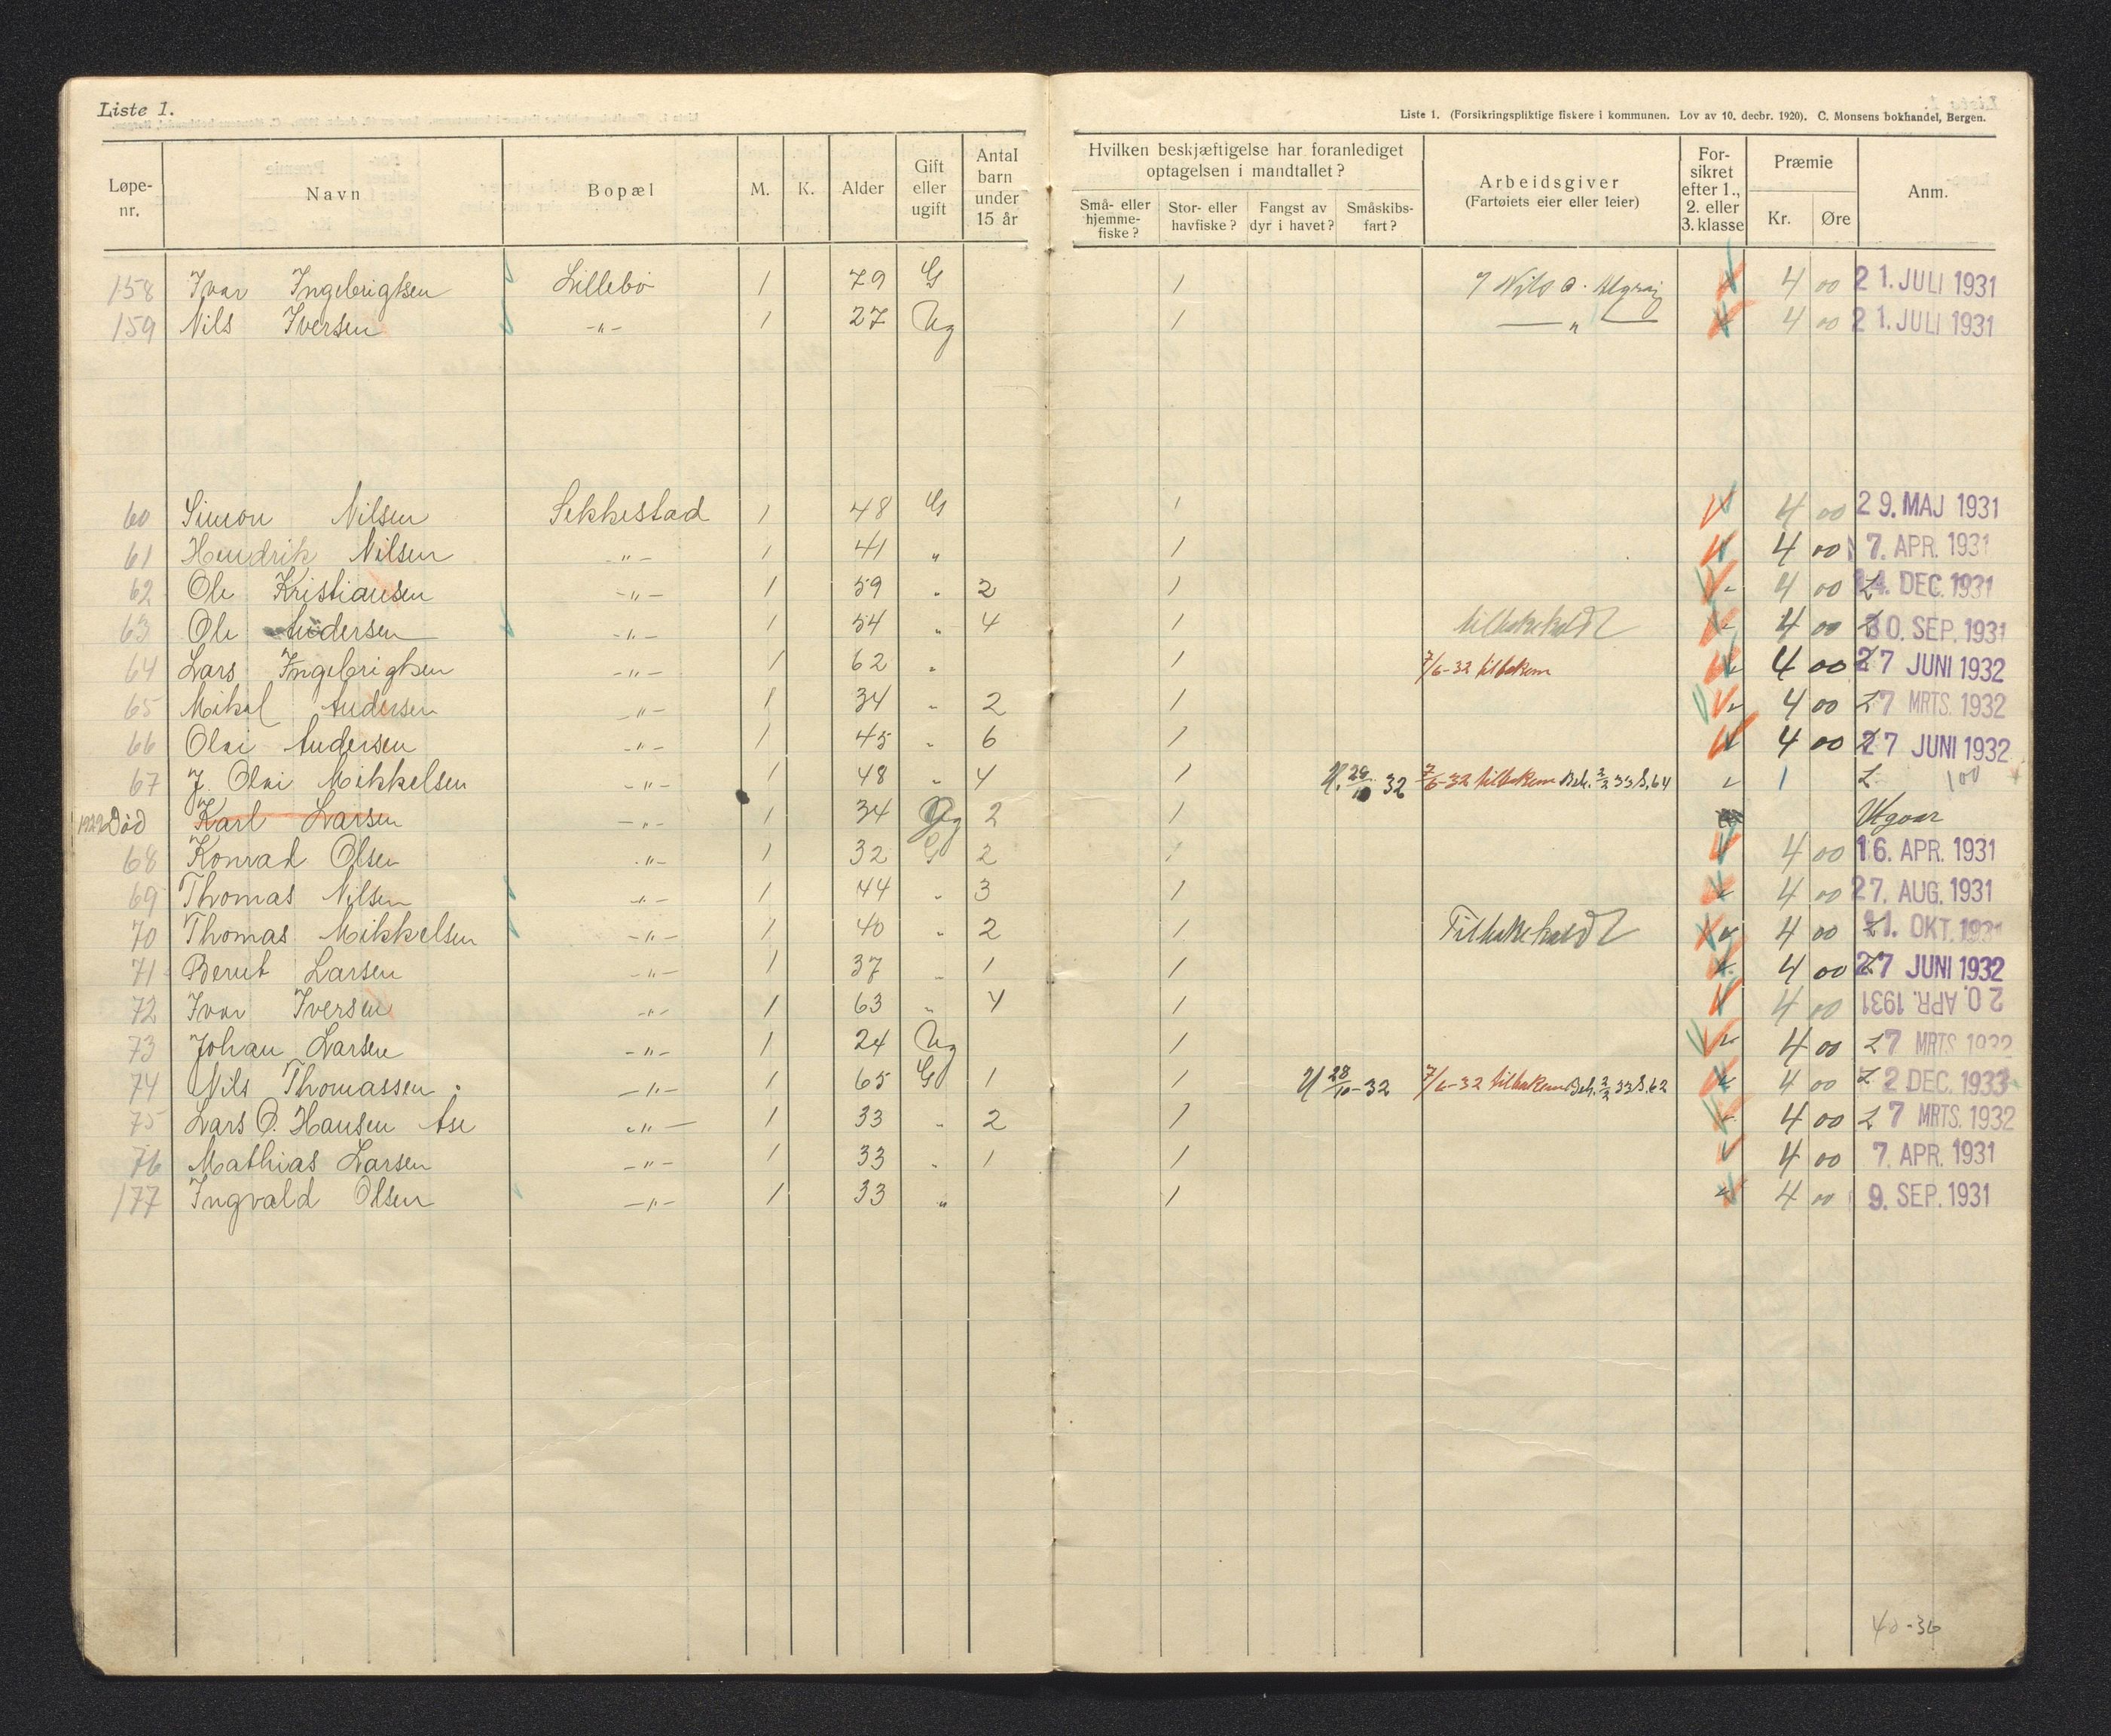 Liste 1.
Liste 1. (Forsikringspliktige fiskere i kommunen. Lov av 10. decbr. 1920). C. Monsens bokhandel, Bergen.
Løpe-nr. Navn Bopæl M. K. Alder Gift eller ugift Antal barn under 15 år Hvilken beskjæftigelse har foranlediget optagelsen i mandtallet? Små- eller hjemme-fiske? Stor- eller havfiske? Fangst av dyr i havet? Småskibs-fart? Arbeidsgiver (Fartøiets eier eller leier) For-sikret efter 1., 2. eller 3. klasse Præmie Kr. Øre Anm.
158 Ivar Ingebrigtsen Lillebö 1 79 G 1 Nils O. 4 00 21. JULI 1931
159 Nils Iversen -"- 1 27 Ug 1 — " — 4 00 21. JULI 1931
60 Simon Nilsen Sekkestad 1 48 G 1 4 00 29. MAJ 1931
61 Hendrik Nilsen -"- 1 41 " 1 4 00 7. APR. 1931
62 Ole Kristiansen -"- 1 59 " 2 1 4 00 DEC. 1931
63 Ole Andersen -"- 1 54 " 4 1 tilbakeholdt 4 00 30. SEP. 1931
64 Lars Ingebrigtsen -"- 1 62 " 1 7/6-32 tilbakem 4 00 27 JUNI 1932
65 Mikal Andersen -"- 1 34 " 2 1 4 00 L 7 MRTS. 1932
66 Olai Andersen -"- 1 45 " 6 1 4 00 27 JUNI 1932
67 J. Olai Mikkelsen -"- 1 48 " 4 1 32 7/6-32 tilbakem Beh. 2/2 33 S. 64 1 L 100
1929 Död Karl Larsen -"- 1 34 Ug 2 1 Utgaar
68 Konrad Olsen -"- 1 32 G 2 1 4 00 16. APR. 1931
69 Thomas Nilsen -"- 1 44 " 3 1 4 00 27. AUG. 1931
70 Thomas Mikkelsen -"- 1 40 " 2 1 Tilbakeholdt 4 00 21. OKT. 1931
71 Berut Larsen -"- 1 37 " 1 1 4 00 27 JUNI 1932
72 Ivar Iversen -"- 1 63 " 4 1 4 00 20. APR. 1931
73 Johan Larsen -"- 1 24 Ug 1 4 00 L 7 MRTS 1932
74 Nils Thomassen -"- 1 65 G 1 1 U 28/10-32 7/6-32 tilbakem Beh. 2/2 33 S. 62 4 00 L 2 DEC. 1933
75 Lars O. Hansen Ase -"- 1 33 " 2 1 4 00 L 7 MRTS. 1932
76 Mathias Larsen -"- 1 33 " 1 1 4 00 7. APR. 1931
177 Ingvald Olsen -"- 1 33 " 1 4 00 9. SEP. 1931
40-36